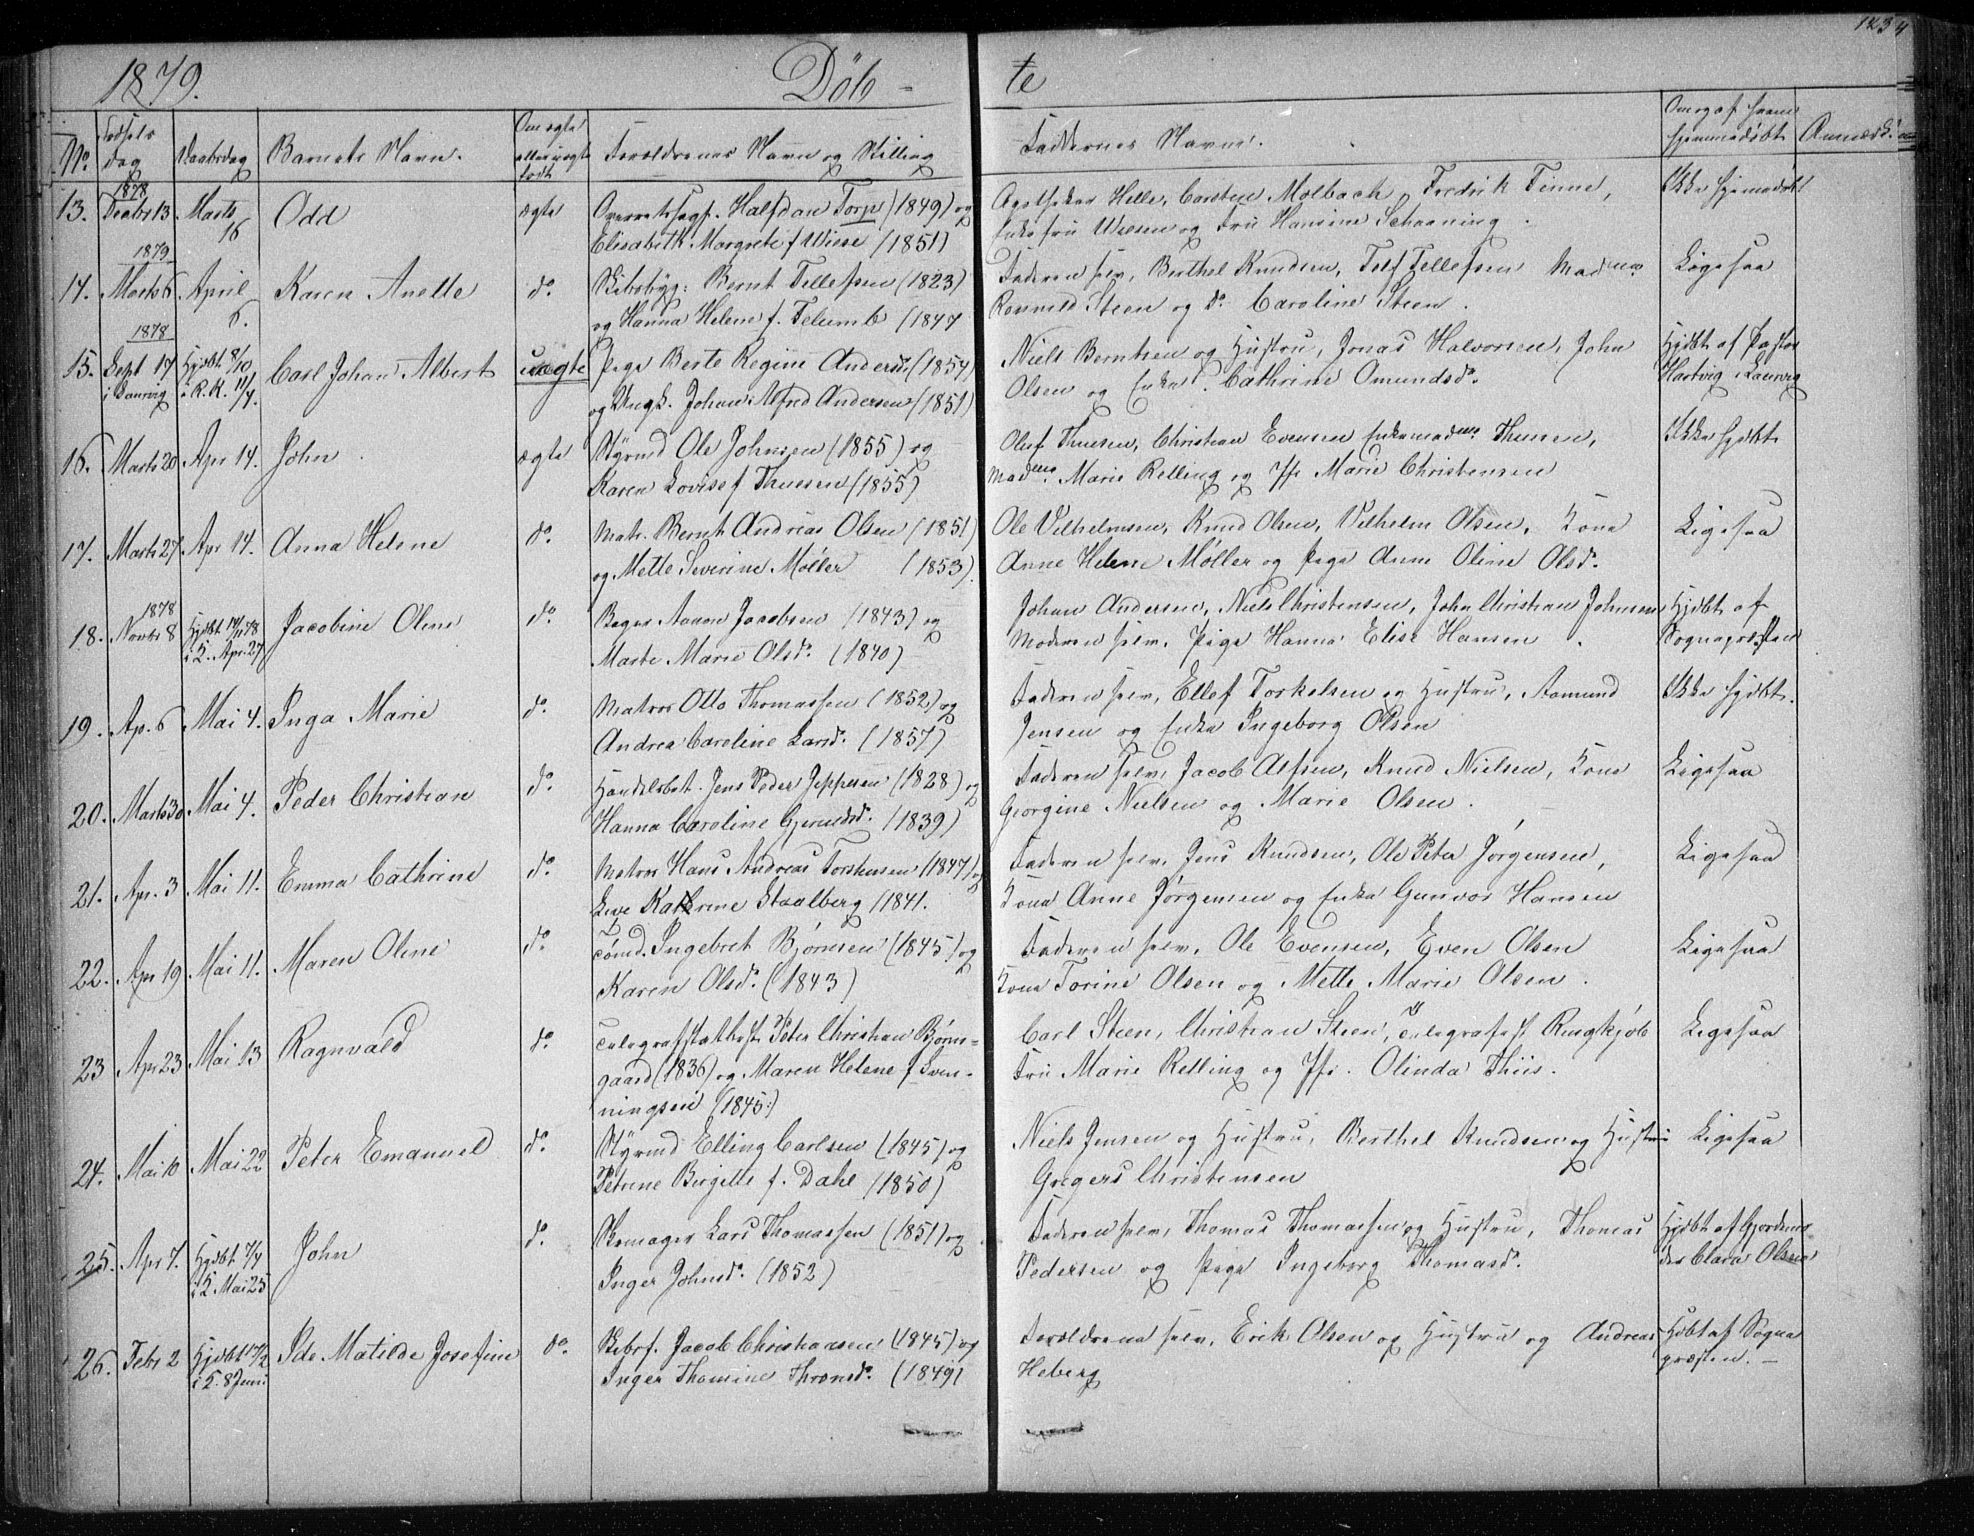 1234
1879. Döb - te
No. Fødsels dag Daabsdag Barnets Navn. Om ægte eller uægte født Forældrenes Navn og Stilling Faddernes Navne. Om og af hvem hjemmedøbt Anmærk.
1878
13. Decbr 13 Marts 16 Odd ægte Overretssagf. Halfdan Torp (1849) og Apotheker Helle, Carsten Molbach, Fredrik Finne, Ikke hjemmedøbt
Elisabeth Margrete f Wiese (1851) Enkefru Wiesen og Fru Hansine Schaaning.
1879
14. Marts 6 April 6. Karen Anette do. Skibsbyg: Bernt Tellefsen (1823) Faderen selv, Berthel Knudsen, Tellef Tellefsen Madme Ligesaa
og Hanna Helene f. Felumb (1847 Ronnild Steen og do. Caroline Steen.
1878
15. Sept 17 i Laurvig Hjdbt. 8/10 i K. K. 11/4. Carl Johan Albert uægte Pige Berte Regine Andersd. (1854) Niels Berntsen og Hustru, Jonas Halvorsen, John Hjdbt af Pastor
og Ungk. Johan Alfred Andersen (1851) Olsen og Enke Cathrine Omundsdr. Hartvig i Laurvig
16. Marts 20 Apr 14. John ægte Styrmd Ole Johnsen (1855) og Oluf Thuesen, Christian Evensen Enkemadme Thuesen, Ikke hjdbt
Karen Lovise f Thuesen (1855) Madme. Marie Relling og Jfr Marie Christensen
17. Marts 27 Apr 14. Anna Helene do. Matr. Bernt Andreas Olsen (1851) Ole Vilhelmsen, Knud Olsen, Vilhelm Olsen, Kone Ligesaa
og Mette Severine Møller (1853). Anne Helene Møller og Pige Anne Oline Olsdr.
1878
18. Novbr 8 Hjdbt 14/11 78 i K. Apr. 27 Jacobine Oline do. Bager Aanon Jacobsen (1843) og Johan Andersen, Niels Christensen, John Christian Johnsen, Hjdbt af
Marte Marie Olsdr. (1840) Moderen selv, Pige Hanna Elise Hansen. Sognepresten
19. Ap. 6 Mai 4. Inga Marie do. Matros Otto Thomassen (1852) og Faderen selv, Ellef Torkelsen og Hustru, Aamund Ikke hjdbt.
Andrea Caroline Larsd. (1857) Jensen og Enke Ingeborg Olsen
20. Marts 30 Mai 4. Peder Christian do. Handelsbet. Jens Peder Jeppesen (1828) og Faderen selv, Jacob Alfsen, Knud Nielsen, Kone Ligesaa
Hanna Caroline Gjerulsdr. (1839) Georgine Nielsen og Marie Olsen.
21. Apr. 3 Mai 11. Emma Cathrine do. Matros Hans Andreas Torstensen (1847) og Faderen selv. Jens Knudsen, Ole Peter Jørgensen, Ligesaa
Katrine Staalberg (1841. Kone Anne Jørgensen og Enke Gunvor Hansen
22. Apr 19 Mai 11. Maren Oline do. Tømd. Ingebret Bjørnsen (1845) og Faderen selv, Ole Evensen, Even Olsen Ligesaa
Karen Olsdr. (1843) Kone Torine Olsen og Mette Marie Olsen.
23 Apr 23 Mai 13 Ragnvald do. Telegrafstatbest. Peter Christian Bjørns- Carl Steen, Christian Steen, Telegrafist Ringkjøb Ligesaa
gaard (1836) og Maren Helene f Sven- Fru Marie Relling og Jfr. Olinda Thiis.
ningsen (1845)
24. Mai 10 Mai 22 Peter Emanuel do. Styrmd Elling Carlsen (1845) og Niels Jensen og Hustru, Berthel Knudsen og Hustru Ligesaa
Petrine Birgitte f. Dahl (1850) Gregers Christensen
25. Apr 7. Hjdbt 7/4 i K. Mai 25 John do. Skomager Lars Thomassen (1851) og Faderen selv, Thomas Thomassen og Hustru, Thomas Hjdbt af Gjordemo
Inger Johnsdr. (1852) Pedersen og Pige Ingeborg Thomasdr. der Clara Olsen
26. Febr 2 Hjdbt i K. 8 Juni Ide Matilde Josefine do. Skibsf. Jacob Christiansen (1845) og Forældrene selv, Erik Olsen og Hustru og Andreas Hdbt af Sogne
Inger Thomine Thronsdr. (1849) Heberg præsten.